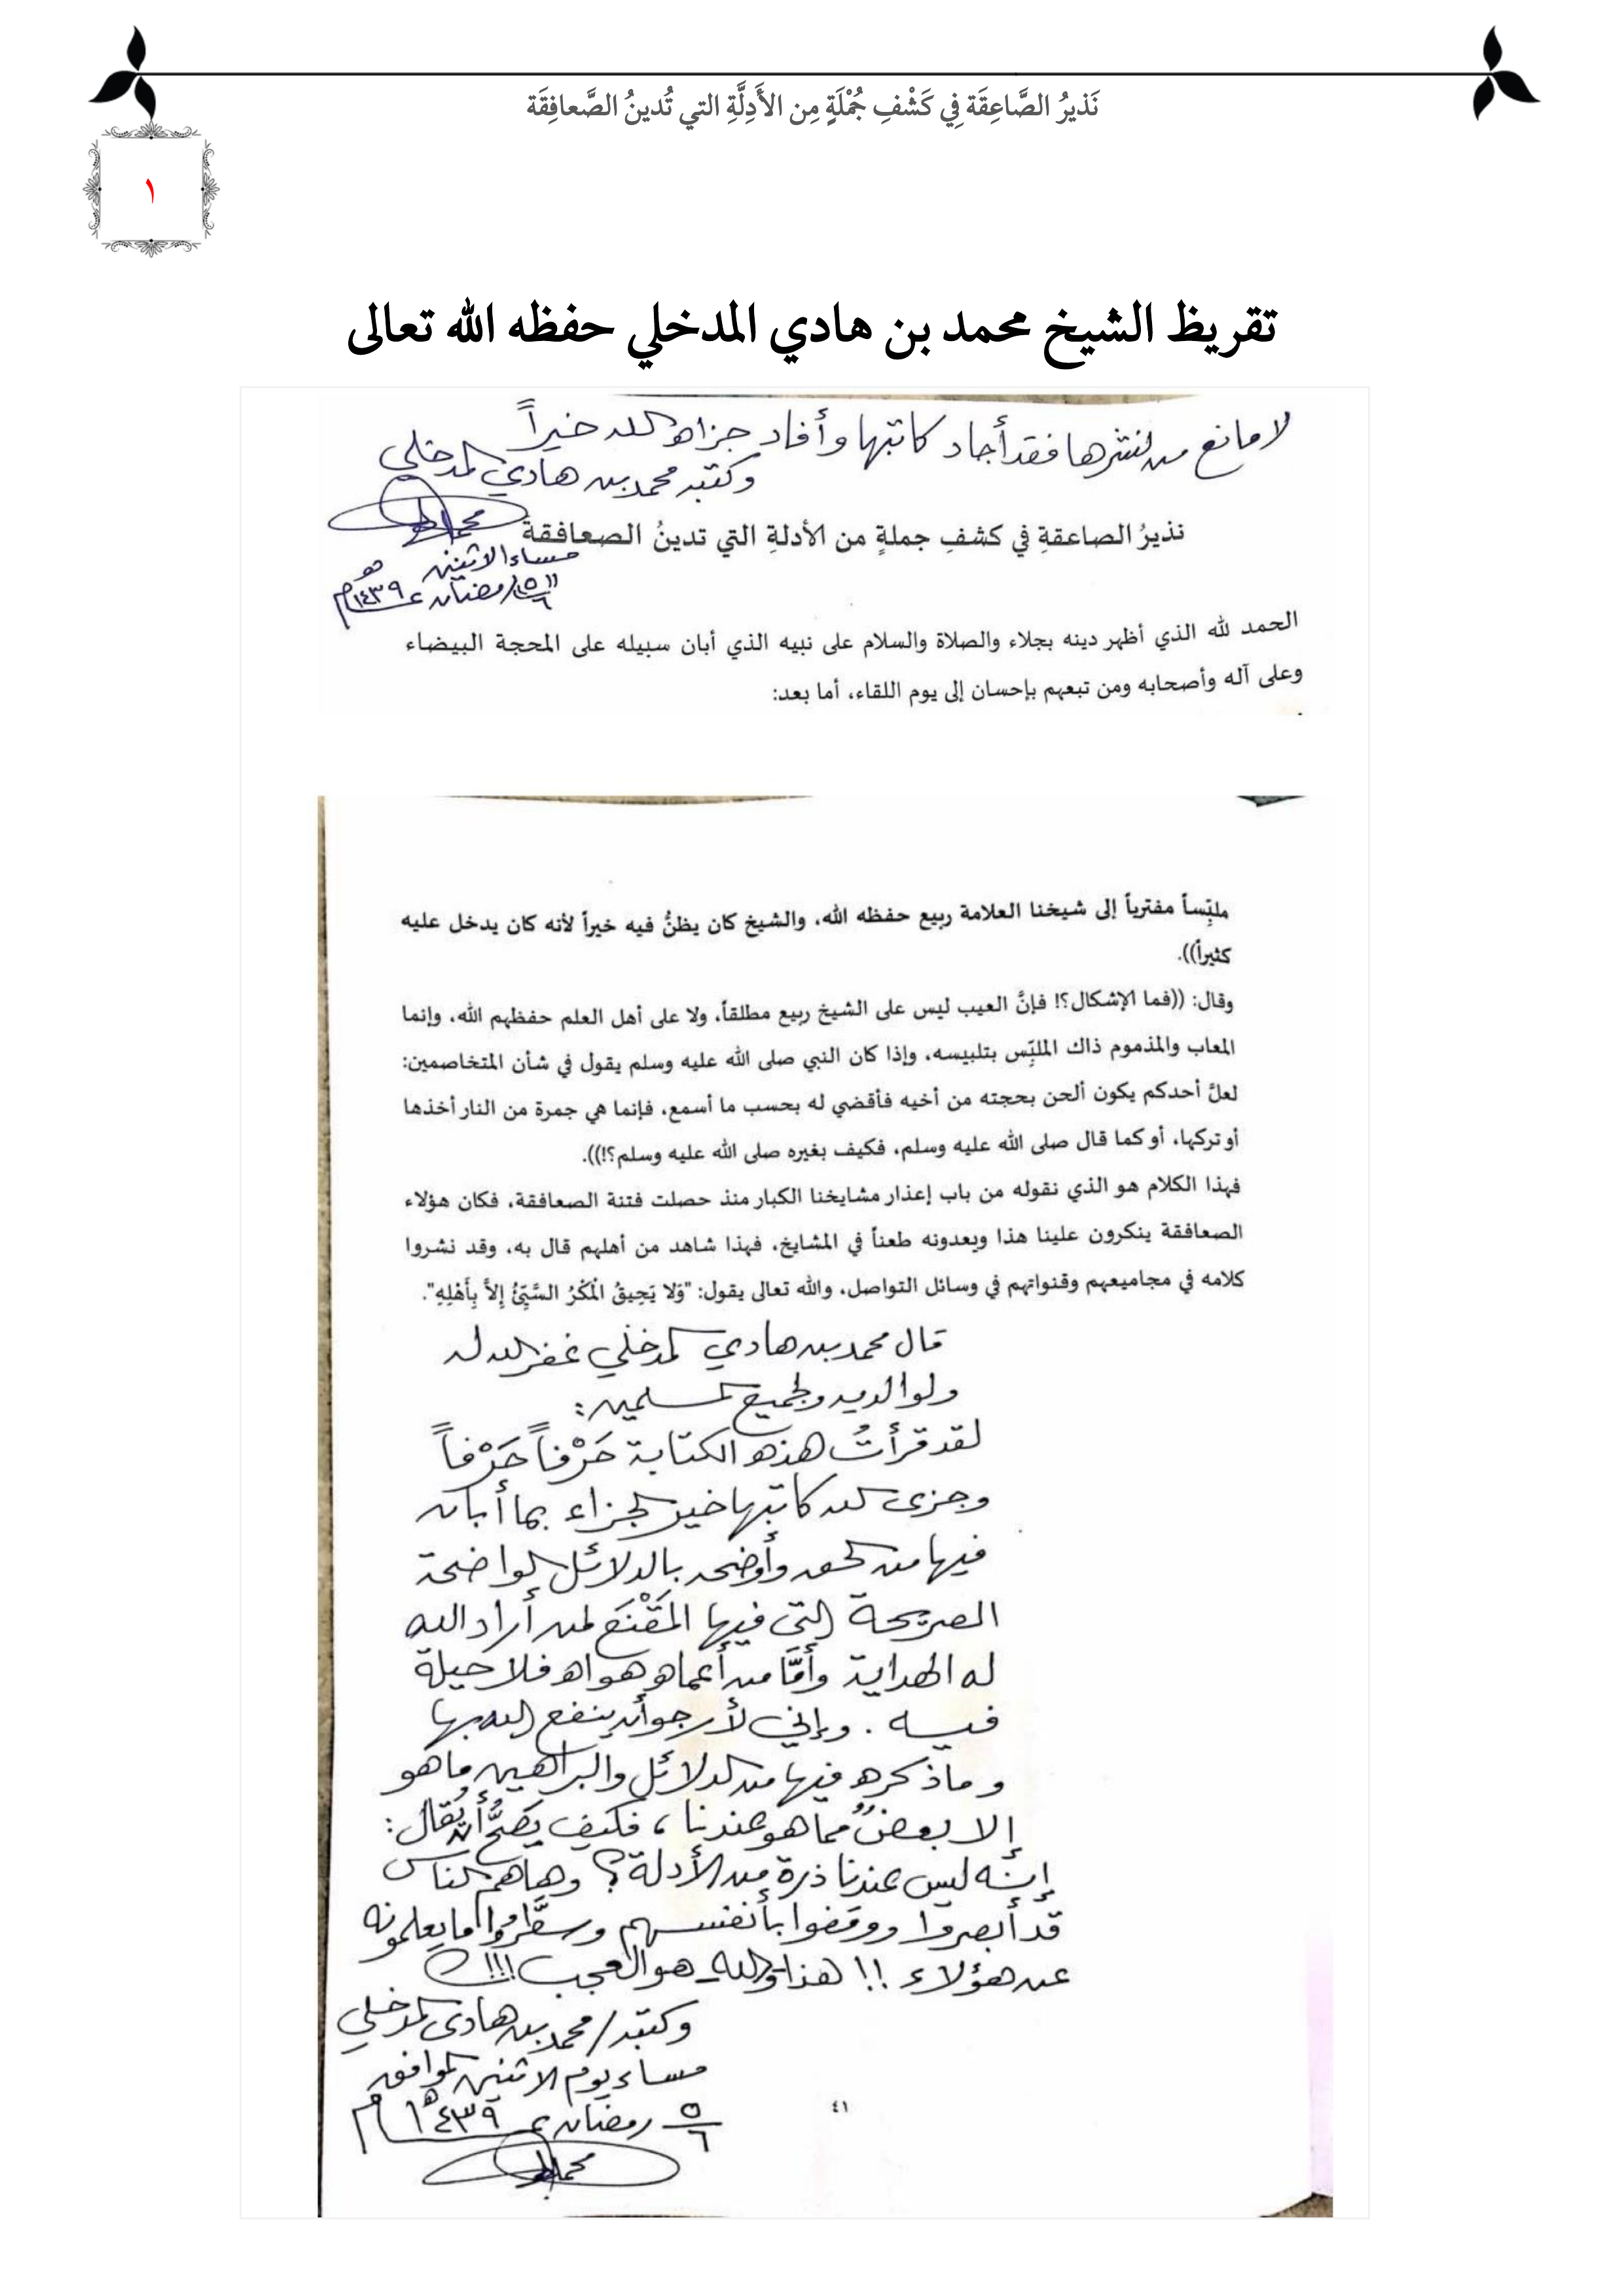 نَذيرُ الصَّاعِقَة فِي كَشْفِ جُمْلَةٍ مِن الأَدِلَّةِ التي تُدينُ الصَّعافِقَة
١
تقريظ الشيخ محمد بن هادي المدخلي حفظه الله تعالى
لا مانع من نشرها فقد أجاد كاتبها وأفاد جزاه الله خيراً
وكتبه محمد بن هادي المدخلي
نذيرُ الصاعقةِ في كشفِ جملةٍ من الأدلةِ التي تدينُ الصعافقة
مساء الاثنين
رمضان ١٤٣٩هـ
الحمد لله الذي أظهر دينه بجلاء والصلاة والسلام على نبيه الذي أبان سبيله على المحجة البيضاء
وعلى آله وأصحابه ومن تبعهم بإحسان إلى يوم اللقاء، أما بعد:
ملبِّساً مفترياً إلى شيخنا العلامة ربيع حفظه الله، والشيخ كان يظنُّ فيه خيراً لأنه كان يدخل عليه
كثيراً)).
وقال: ((فما الإشكال؟! فإنَّ العيب ليس على الشيخ ربيع مطلقاً، ولا على أهل العلم حفظهم الله، وإنما
المعاب والمذموم ذاك الملبِّس بتلبيسه، وإذا كان النبي صلى الله عليه وسلم يقول في شأن المتخاصمين:
لعلَّ أحدكم يكون ألحن بحجته من أخيه فأقضي له بحسب ما أسمع، فإنما هي جمرة من النار أخذها
أو تركها، أو كما قال صلى الله عليه وسلم، فكيف بغيره صلى الله عليه وسلم؟!)).
فهذا الكلام هو الذي نقوله من باب إعذار مشايخنا الكبار منذ حصلت فتنة الصعافقة، فكان هؤلاء
الصعافقة ينكرون علينا هذا ويعدونه طعناً في المشايخ، فهذا شاهد من أهلهم قال به، وقد نشروا
كلامه في مجاميعهم وقنواتهم في وسائل التواصل، والله تعالى يقول: "وَلا يَحِيقُ الْمَكْرُ السَّيِّئُ إِلاَّ بِأَهْلِهِ".
قال محمد بن هادي المدخلي غفر الله له
ولوالديه ولجميع المسلمين:
لقد قرأتُ هذه الكتابة حَرْفاً حَرْفاً
وجزى الله كاتبها خير الجزاء بما أبان
فيها من الحق وأوضحه بالدلائل الواضحة
الصريحة التي فيها المَقْنَع لمن أراد الله
له الهداية وأمَّا من أعماه هواه فلا حيلة
فيه . وإني لأرجو أن ينفع الله بها
وما ذكره فيها من الدلائل والبراهين ما هو
إلا بعضٌ مما هو عندنا ، فكيف يَصِحُّ أن يُقال:
إنه ليس عندنا ذرة من الأدلة ؟ وها هم الناس
قد أبصروا ووقفوا بأنفسهم وسطَّروا ما يعلمونه
عن هؤلاء !! هذا والله هو العجب !!!
وكتبه/ محمد بن هادي المدخلي
مساء يوم الاثنين الموافق
٥/٦ رمضان ١٤٣٩هـ
٤١